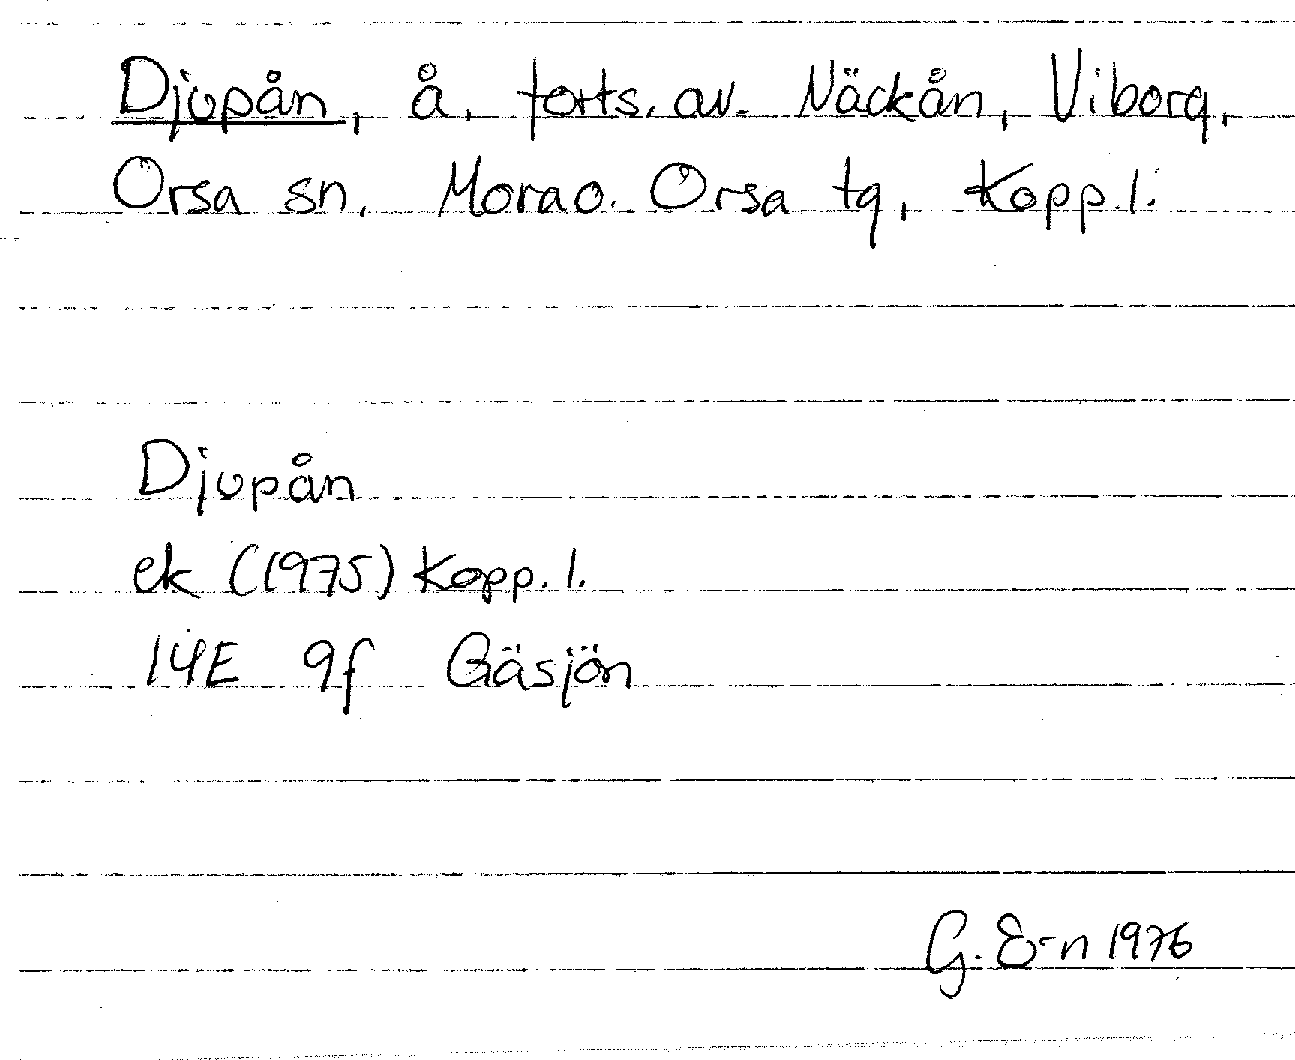 Djupån, å, forts. av. Näckån, Viborg,
Orsa sn, Mora o. Orsa tg, Kopp. l.
Djupån
ek (1975) Kopp. l.
14E 9f Gäsjön
G. E-n 1976